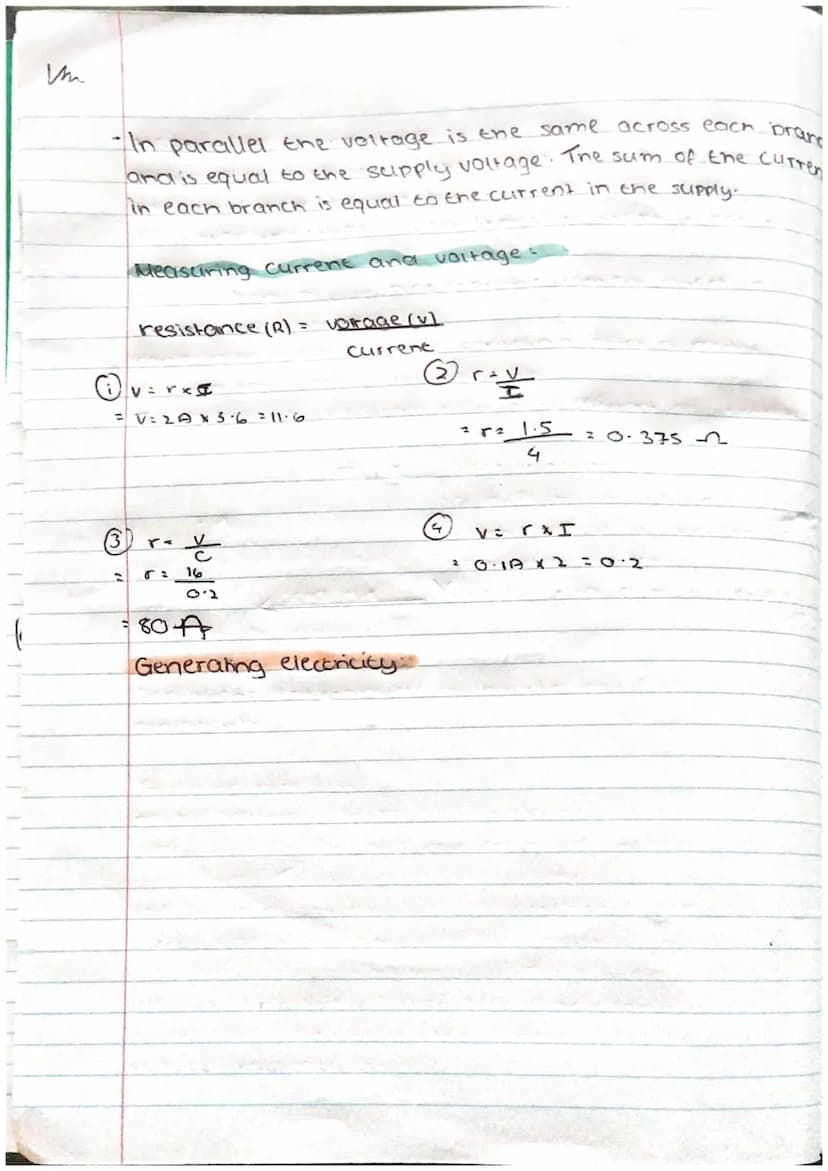 - In parallel the voltage is the same across each branc
and is equal to the supply voltage. The sum of the curren
in each branch is equal to the current in the supply.
Measuring current and voltage:
resistance (R) = voltage (V)
current
① V = r x I
= V = 2A x 3.6 = 11.6
② r = V
I
= r = 1.5 = 0.375 Ω
4
③ r = V
C
= r = 16
0.2
= 80 A
④ V = r x I
= 0.1A x 2 = 0.2
Generating electricity: